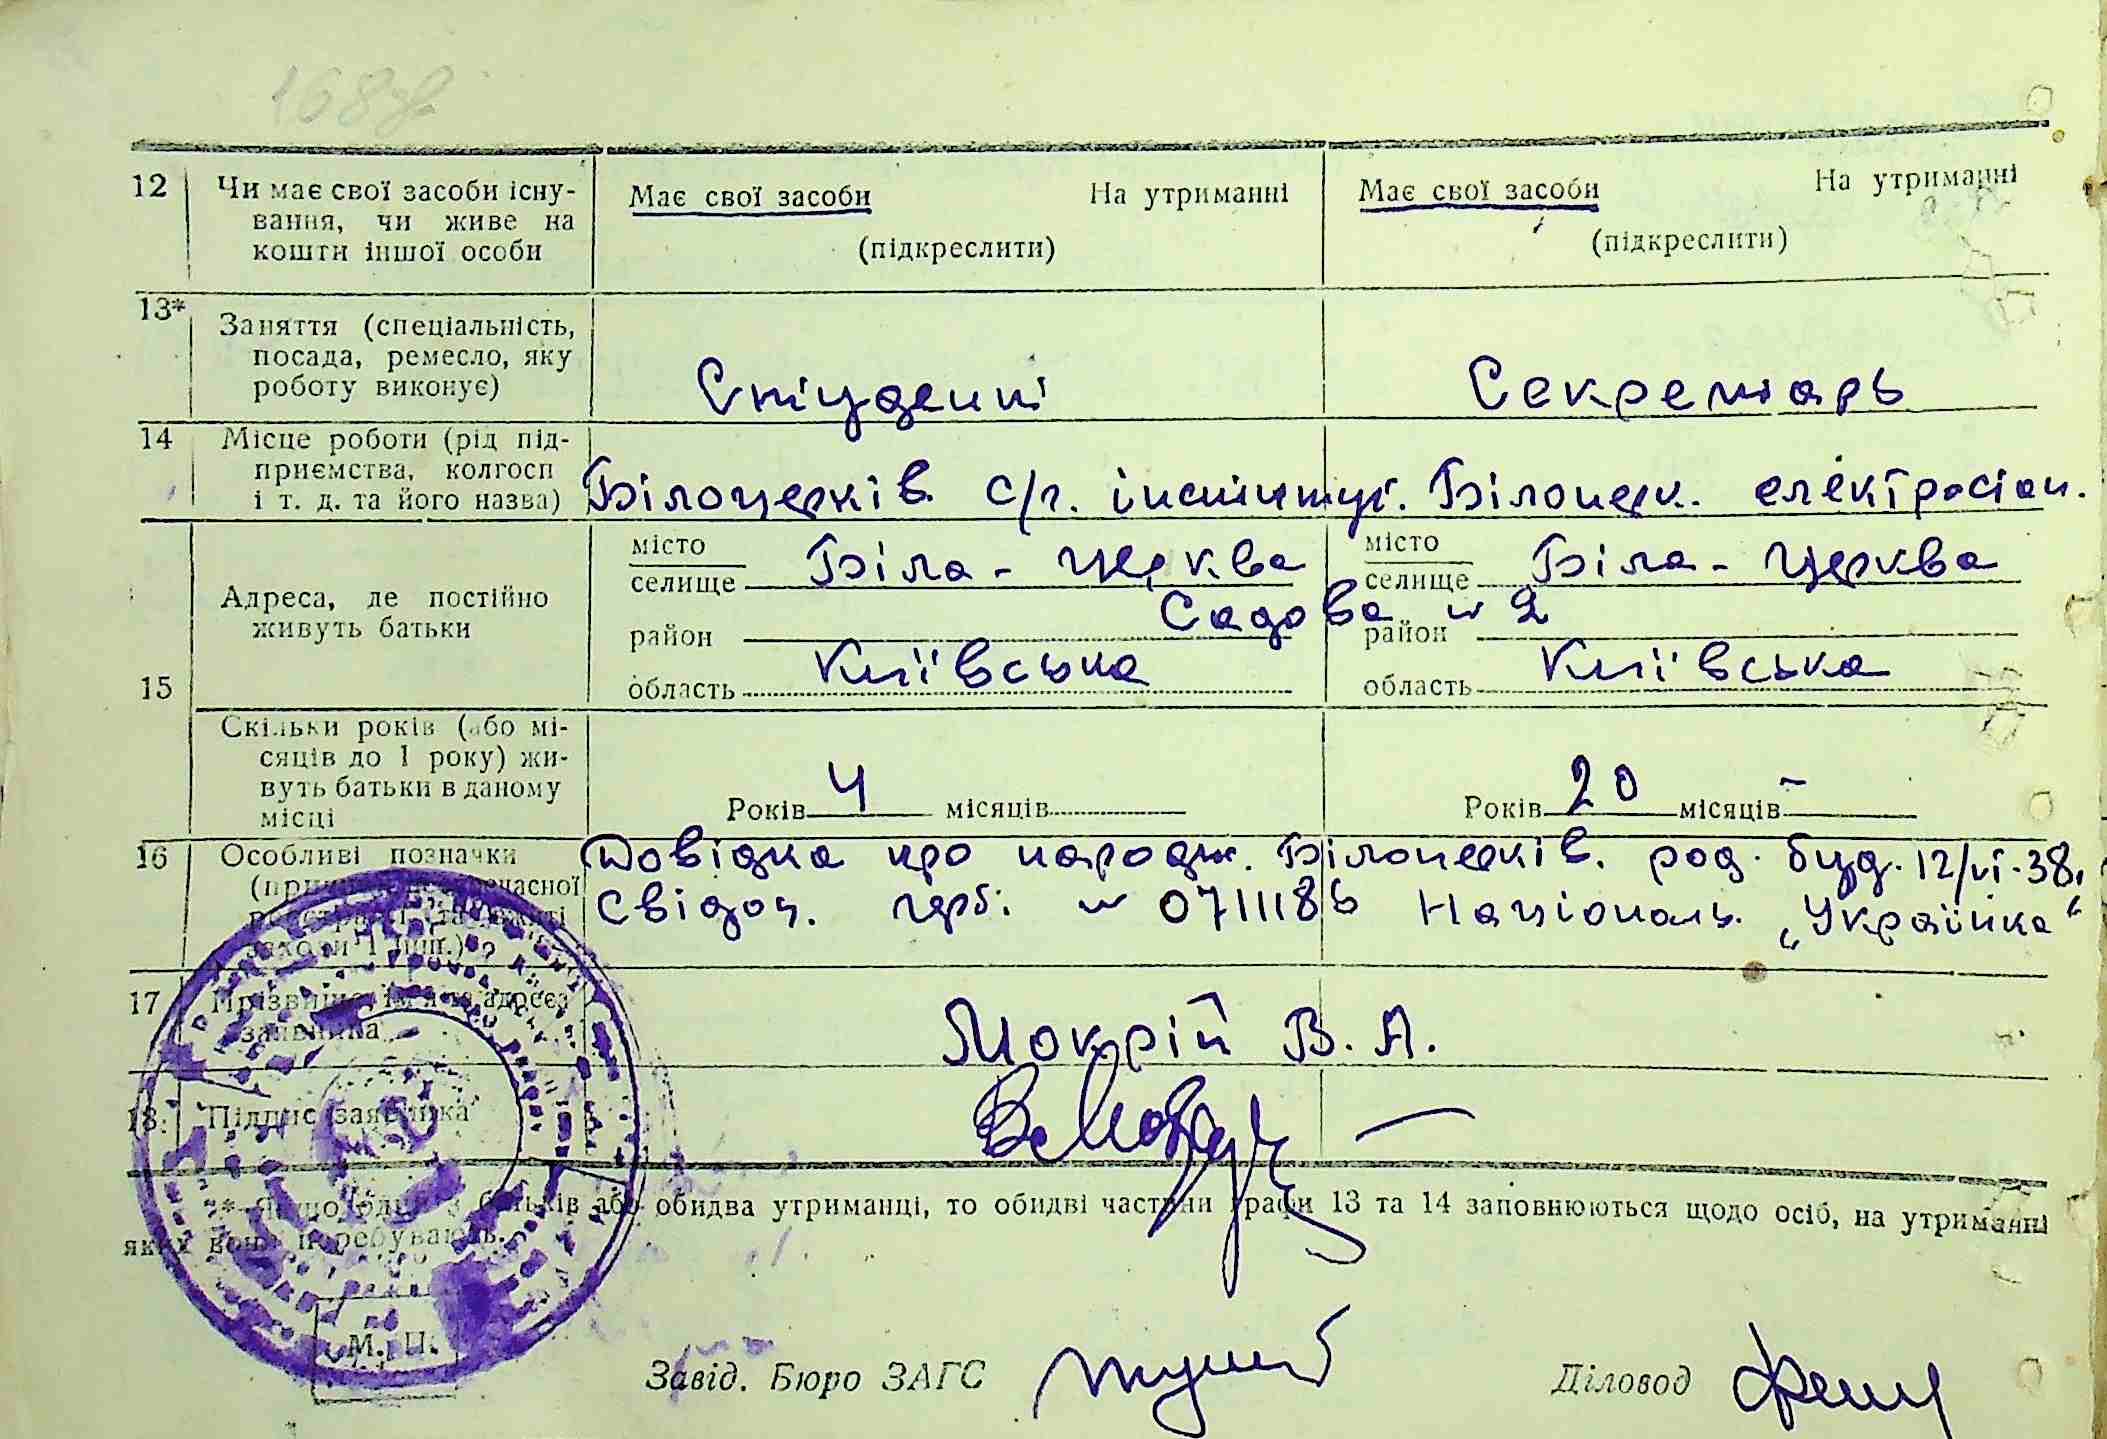 168
12 Чи має свої засоби існу- Має свої засоби На утриманні Має свої засоби На утриманні
вання, чи живе на
кошти іншої особи (підкреслити) (підкреслити)
13* Заняття (спеціальність,
посада, ремесло, яку
роботу виконує) Студент Секретарь
14 Місце роботи (рід під-
приємства, колгосп
і т. д. та його назва) Білоцерків. с/г. інститут. Білоцерк. електростан.
місто місто
селище Біла-Церква селище Біла-Церква
Адреса, де постійно Садова № 2
живуть батьки район район
15 область Київська область Київська
Скільки років (або мі-
сяців до 1 року) жи-
вуть батьки в даному
місці Років 4 місяців Років 20 місяців -
16 Особливі позначки Довідка про народж. Білоцерків. род. буд. 12/VI-38.
Свідоц. № 071118 Національ. „Українка“
17 Прізвище, ім'я та адреса
заявника Мокрій В. А.
18. Підпис заявника
* Якщо один з батьків або обидва утриманці, то обидві частини графи 13 та 14 заповнюються щодо осіб, на утриманні
яких вони перебувають.
М. П.
Завід. Бюро ЗАГС Діловод